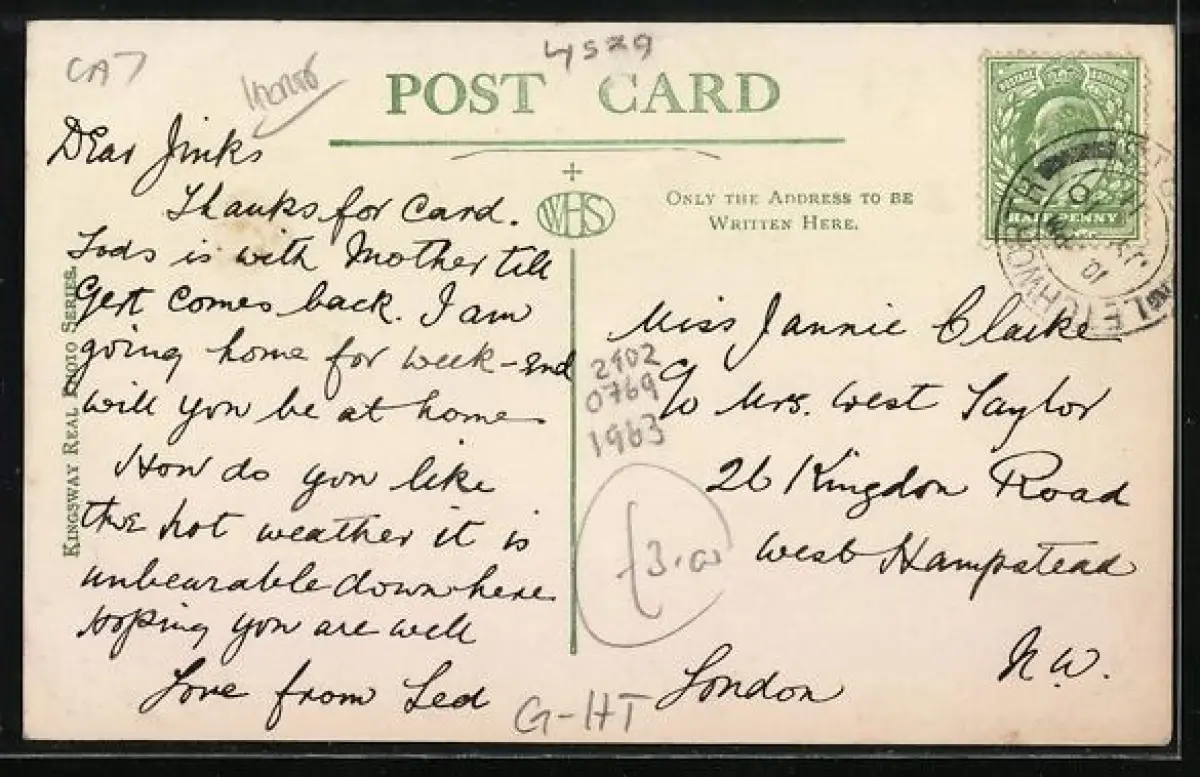 CA7
4529
POST CARD
Dear Jinks
Thanks for Card.
is with Mother till
Gert comes back. I am
going home for week-end
will you be at home
How do you like
the hot weather it is
unbearable down here
Hoping you are well
Love from
KINGSWAY REAL PHOTO SERIES.
WHS
ONLY THE ADDRESS TO BE
WRITTEN HERE.
HALFPENNY
LETCHWORTH
Miss Jannie Clarke
c/o Mrs. West Taylor
26 Kingdon Road
West Hampstead
London
N.W.
2902
0769
1963
£3.00
G-HT